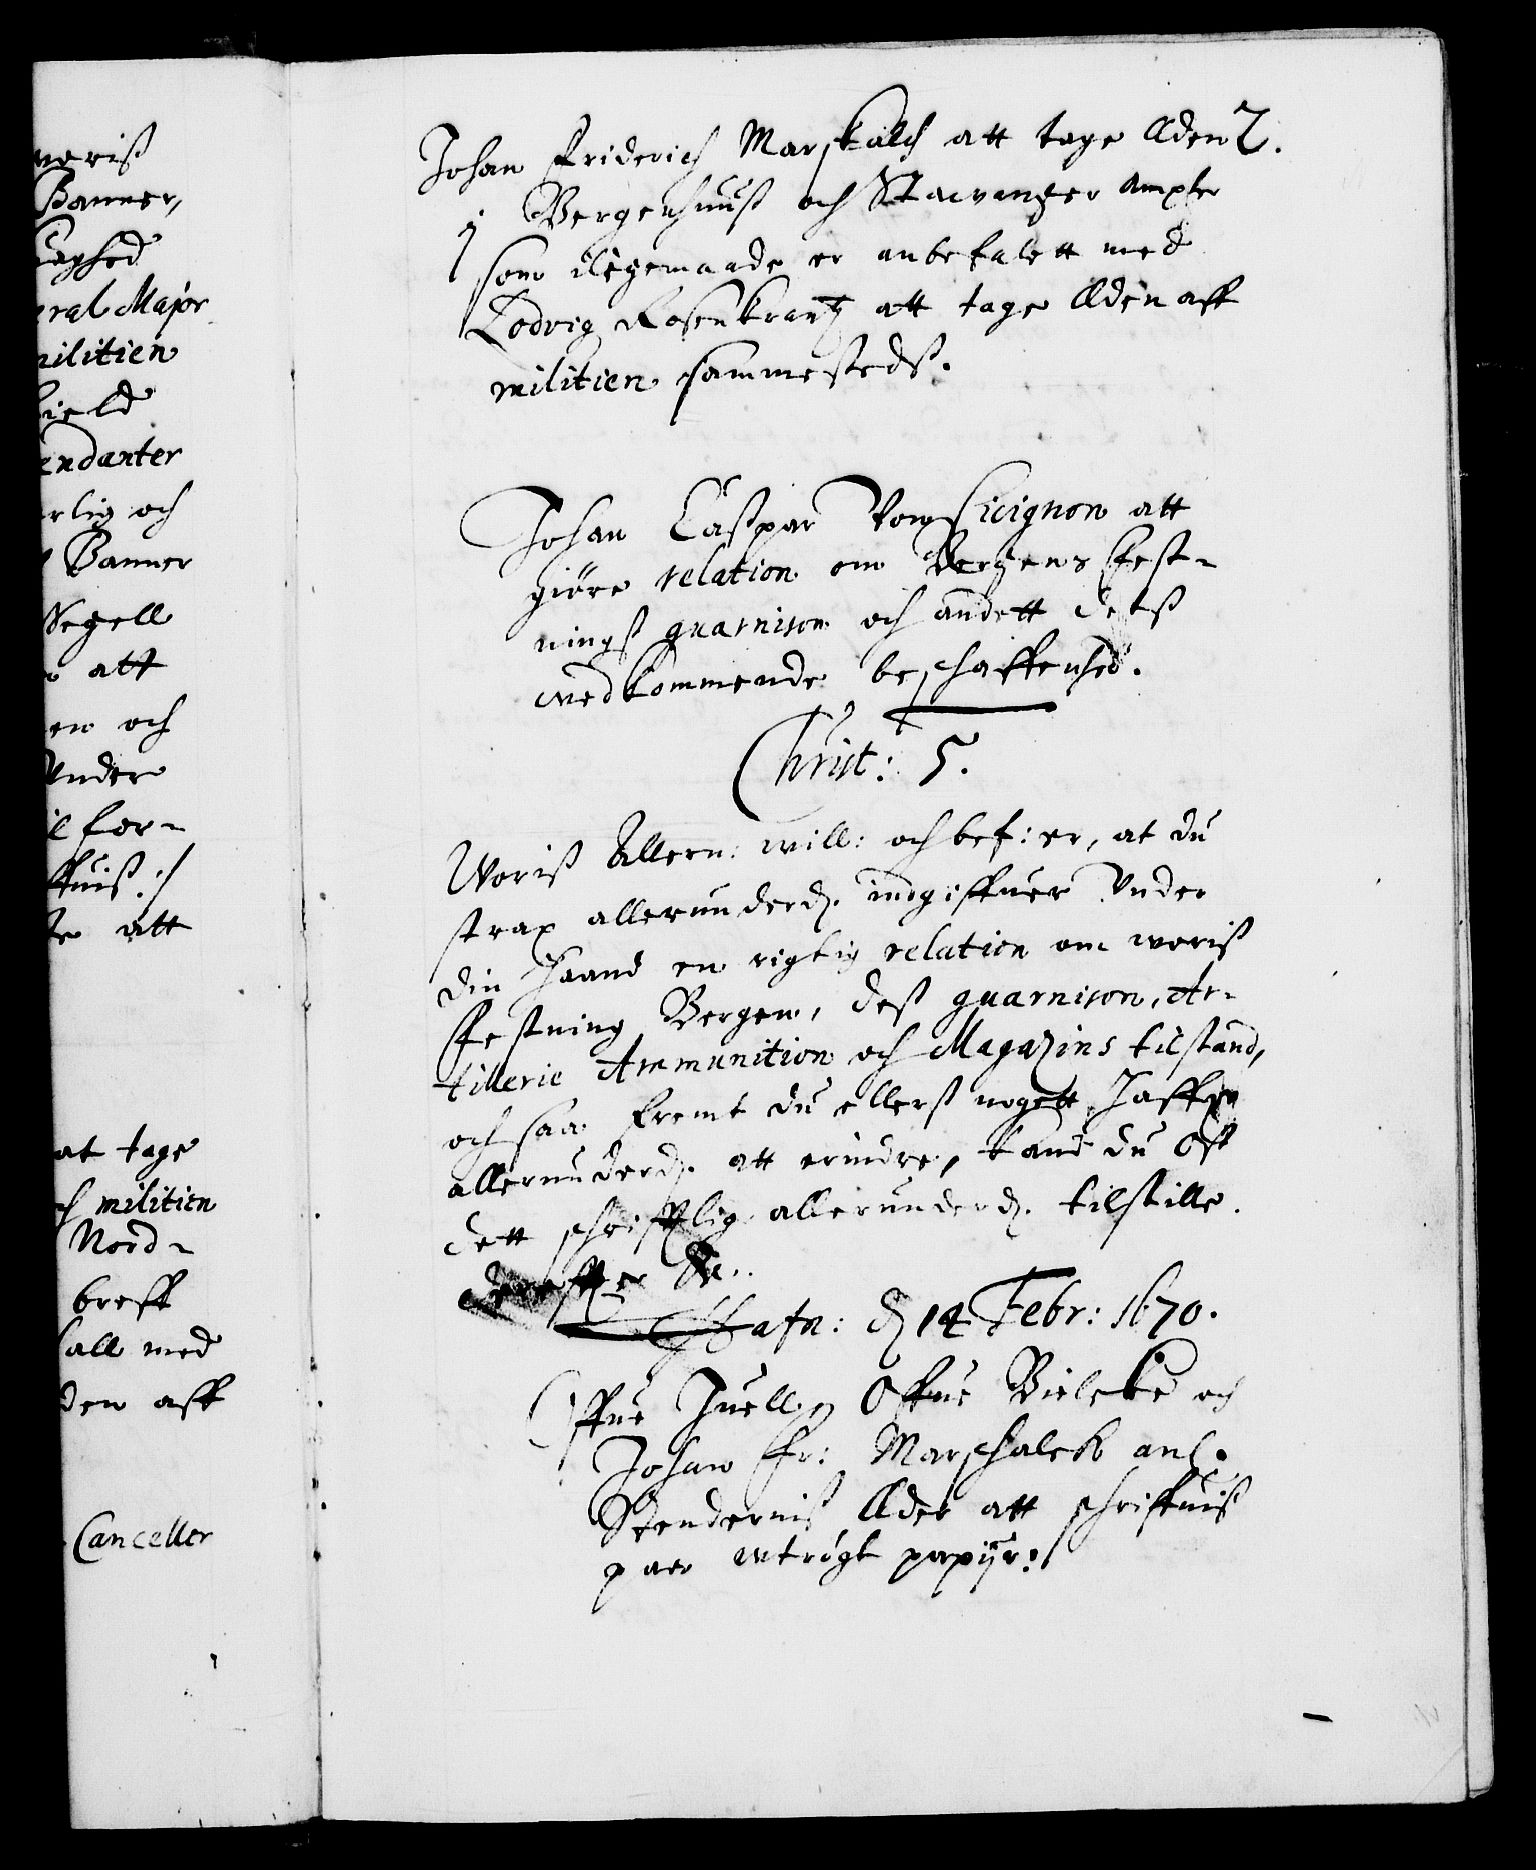 woriß
Banner,
eral Major
militien
endanter
rlig och
Banner
Segell
att
en och
Under
il for-
ffuiß:/
att
at tage
militien
Nord-
breff
all med
den aff
Canceller
Johan Friderich Marskalch att tage Æden
j Bergenhuuß och Stawanger Ampter
som iligemaade er anbefalett med
Lodvig Rosenkrantz att tage Æden aff
militien sammesteds.
Johan Caßpar Von Cicignon att
giöre relation om Bergens Fest-
ningß guarnison och andett deß
wedkommende beschaffenhed.
Christ: 5.
Woriß Allern: will: och bef: er, at du
strax allerunderd. indgiffuer Under
din Haand en rigtig relation om woriß
Festning Bergen, deß guarnison, Ar-
tillerie Ammunition och Magazins tilstand,
och saa fremt du ellerß nogett haffer
allerunderd. att erindre, kand du Oß
dett schrifftlig allerunderd. tilstille.
derefter
Hafn: d 14 Febr: 1670.
Offue Juell, Offue Bielcke och
Johan Fr: Marschalck anl.
Stenderniß Æder att schriffuiß
paa wtrögt papijr: